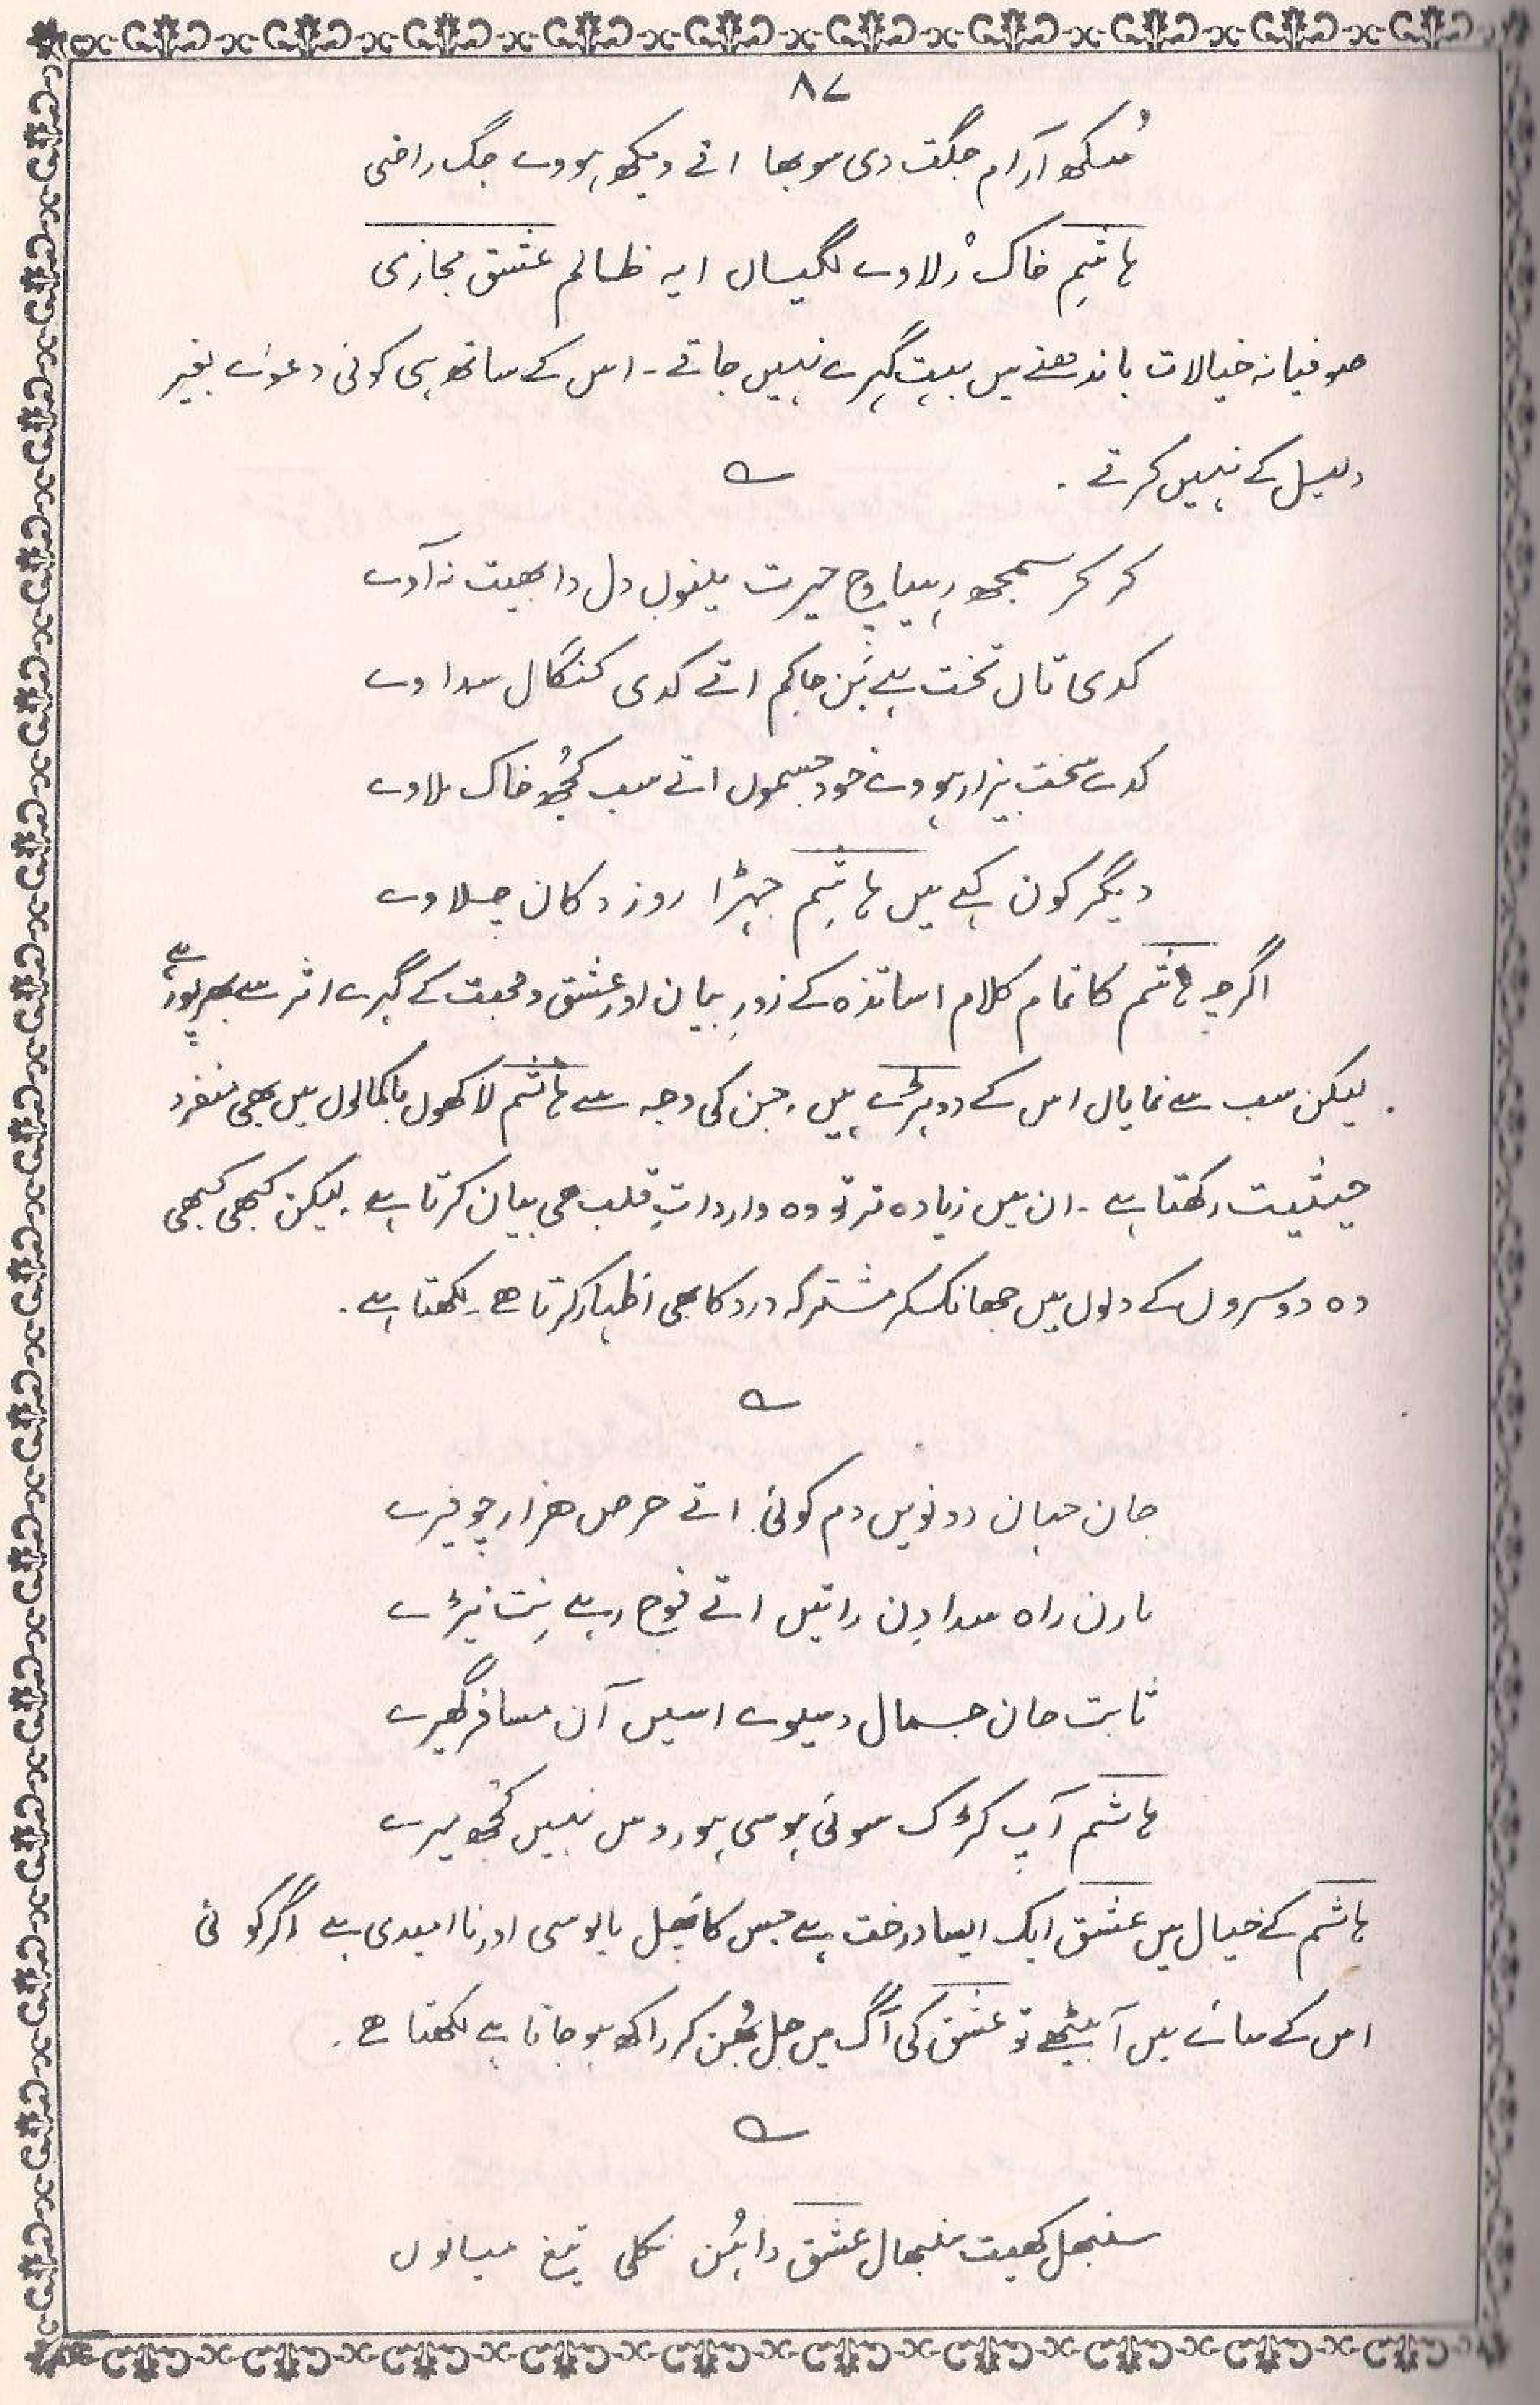 ۸۷
سُکھ آرام جگت دی سوبھا اتے دیکھ ہووے جگ راضی
ہاشم خاک رُلاوے گلیاں ایہ ظالم عشق مجازی
صوفیانہ خیالات باندھنے میں بہت گہرے نہیں جاتے۔ اس کے ساتھ ہی کوئی دعوےٰ بغیر
دلیل کے نہیں کرتے۔
کر کر سمجھ رہیا وچ حیرت مینوں دل دا بھیت نہ آوے
کدی تاں تخت بہے بَن حاکم اتے کدی کنگال سداوے
کدے سخت بیزار ہووے خود جسموں اتے سب کُجھ خاک ملاوے
دیگر کون کہے میں ہاشم جہڑا روز دکان چلاوے
اگرچہ ہاشم کا تمام کلام اساتذہ کے زورِ بیان اور عشق و محبت کے گہرے اثر سے بھرپور ہے
لیکن سب سے نمایاں اس کے دوہڑے ہیں۔ جن کی وجہ سے ہاشم لاکھوں باکمالوں میں بھی منفرد
حیثیت رکھتا ہے۔ ان میں زیادہ تر تو وہ وارداتِ قلب ہی بیان کرتا ہے۔ لیکن کبھی کبھی
وہ دوسروں کے دلوں میں جھانک کر مشترکہ درد کا بھی اظہار کرتا ہے۔ لکھتا ہے۔
جان جہان دونویں دم کوئی اتے حرص ہزار چوفیرے
مارن راہ سدا دِن راتیں اتے فوج رہے نِت نیڑے
ثابت جان جمال دسیوے اسیں آن مسافر گھیرے
ہاشم آپ کرُک سوئی ہوسی ہور وس نہیں کجھ میرے
ہاشم کے خیال میں عشق ایک ایسا درخت ہے جس کا پھل مایوسی اور ناامیدی ہے اگر کوئی
اس کے سائے میں آ بیٹھے تو عشق کی آگ میں جل بُھن کر راکھ ہو جاتا ہے لکھتا ہے۔
سنبھل کھیت سنبھال عشق دا ہُن نکلی تیغ میانوں